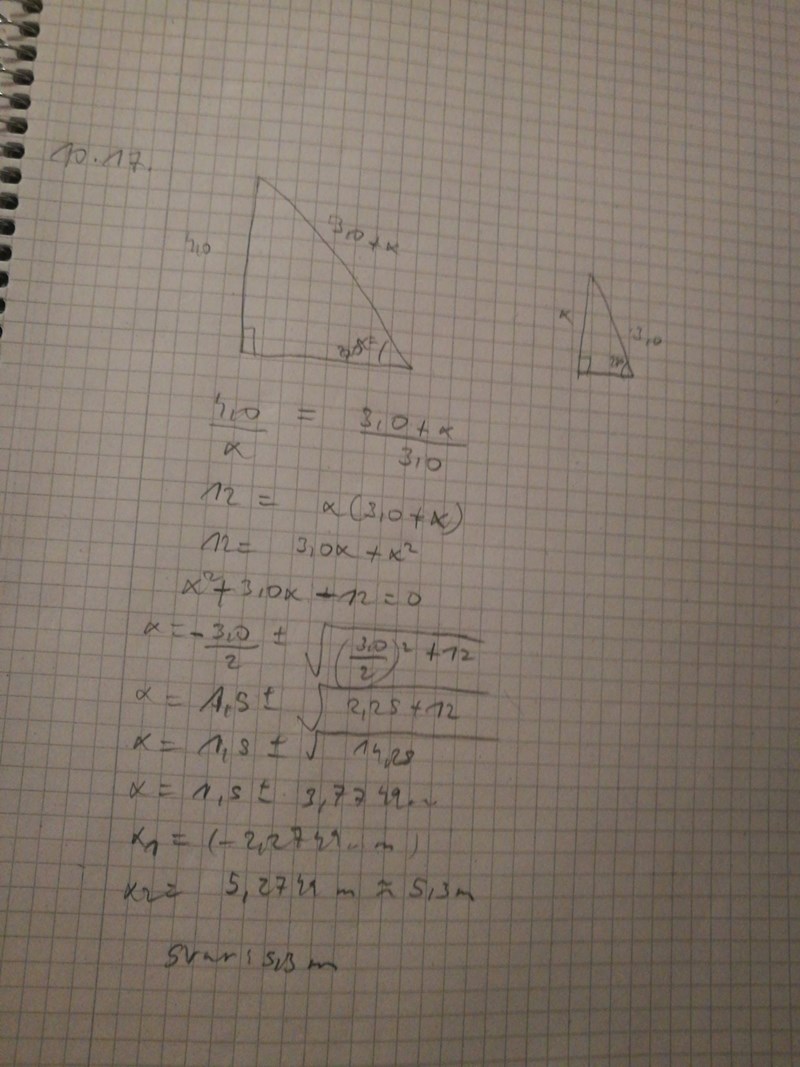 10.17.
4,0
3,0 + x
x
3,0
4,0/x = (3,0 + x)/3,0
12 = x(3,0 + x)
12 = 3,0x + x²
x² + 3,0x - 12 = 0
x = - 3,0/2 ± √((3,0/2)² + 12)
x = 1,5 ± √(2,25 + 12)
x = 1,5 ± √14,25
x = 1,5 ± 3,7749..
x₁ = (-2,2749.. m)
x₂ = 5,2749 m ≈ 5,3 m
Svar: 5,3 m